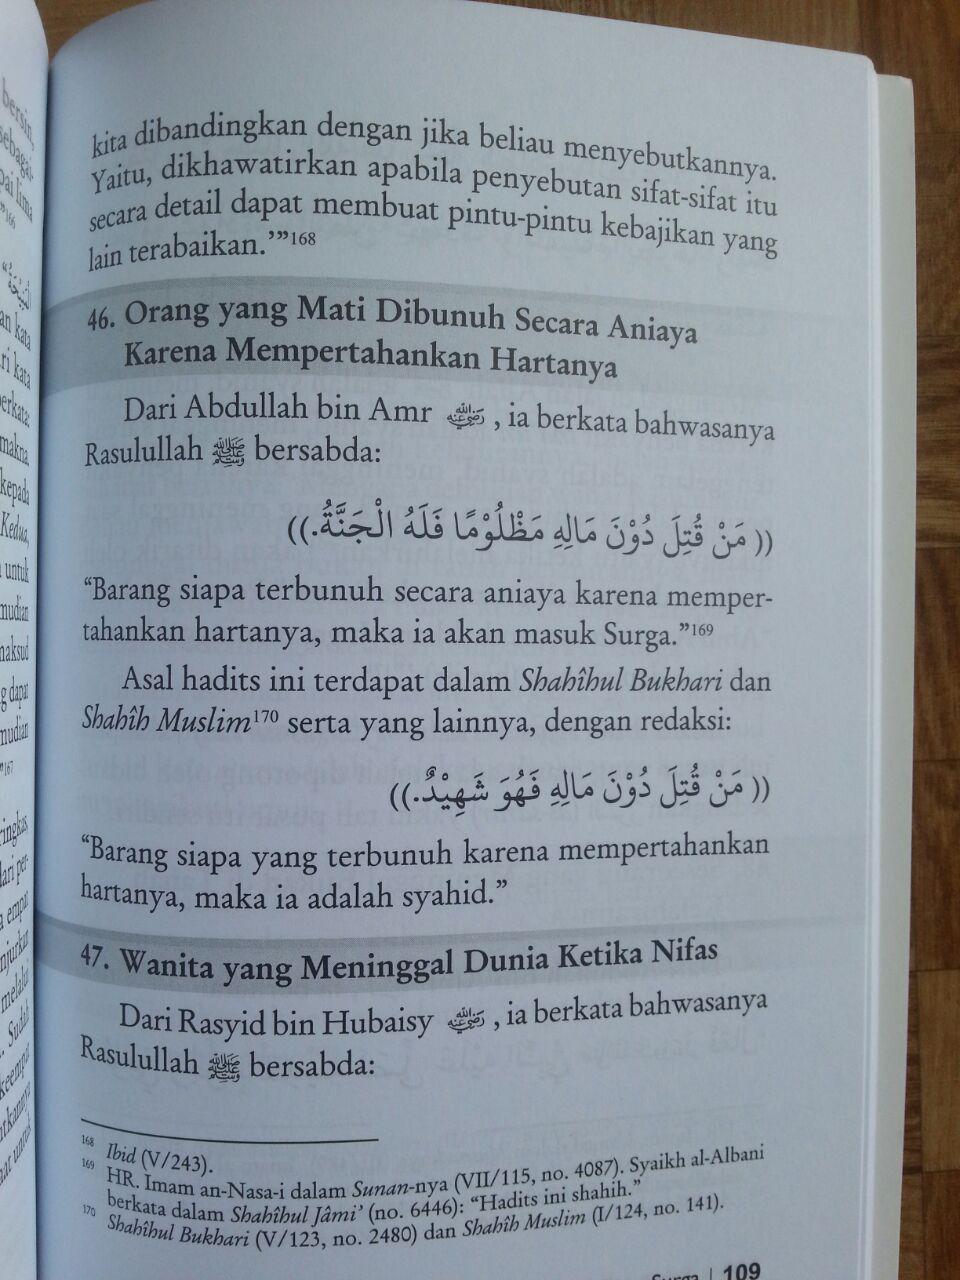 bersin,
sebagai-
pai lima
”¹⁶⁶
kata
ri kata
erkata:
makna.
kepada
Kedua,
untuk
mudian
maksud
g dapat
mudian
”¹⁶⁷
ringkas
dari per-
a empat
njurkan
melalui
Sudah
keempat
kita dibandingkan dengan jika beliau menyebutkannya.
Yaitu, dikhawatirkan apabila penyebutan sifat-sifat itu
secara detail dapat membuat pintu-pintu kebajikan yang
lain terabaikan.’”¹⁶⁸
46. Orang yang Mati Dibunuh Secara Aniaya
Karena Mempertahankan Hartanya
Dari Abdullah bin Amr رضي الله عنه, ia berkata bahwasanya
Rasulullah ﷺ bersabda:
(( مَنْ قُتِلَ دُوْنَ مَالِهِ مَظْلُوْمًا فَلَهُ الْجَنَّةُ.))
“Barang siapa terbunuh secara aniaya karena memper-
tahankan hartanya, maka ia akan masuk Surga.”¹⁶⁹
Asal hadits ini terdapat dalam Shahîhul Bukhari dan
Shahîh Muslim¹⁷⁰ serta yang lainnya, dengan redaksi:
(( مَنْ قُتِلَ دُوْنَ مَالِهِ فَهُوَ شَهِيْدٌ.))
“Barang siapa yang terbunuh karena mempertahankan
hartanya, maka ia adalah syahid.”
47. Wanita yang Meninggal Dunia Ketika Nifas
Dari Rasyid bin Hubaisy رضي الله عنه, ia berkata bahwasanya
Rasulullah ﷺ bersabda:
¹⁶⁸ Ibid (V/243).
¹⁶⁹ HR. Imam an-Nasa-i dalam Sunan-nya (VII/115, no. 4087). Syaikh al-Albani
berkata dalam Shahîhul Jâmi’ (no. 6446): “Hadits ini shahih.”
¹⁷⁰ Shahîhul Bukhari (V/123, no. 2480) dan Shahîh Muslim (I/124, no. 141).
Surga | 109